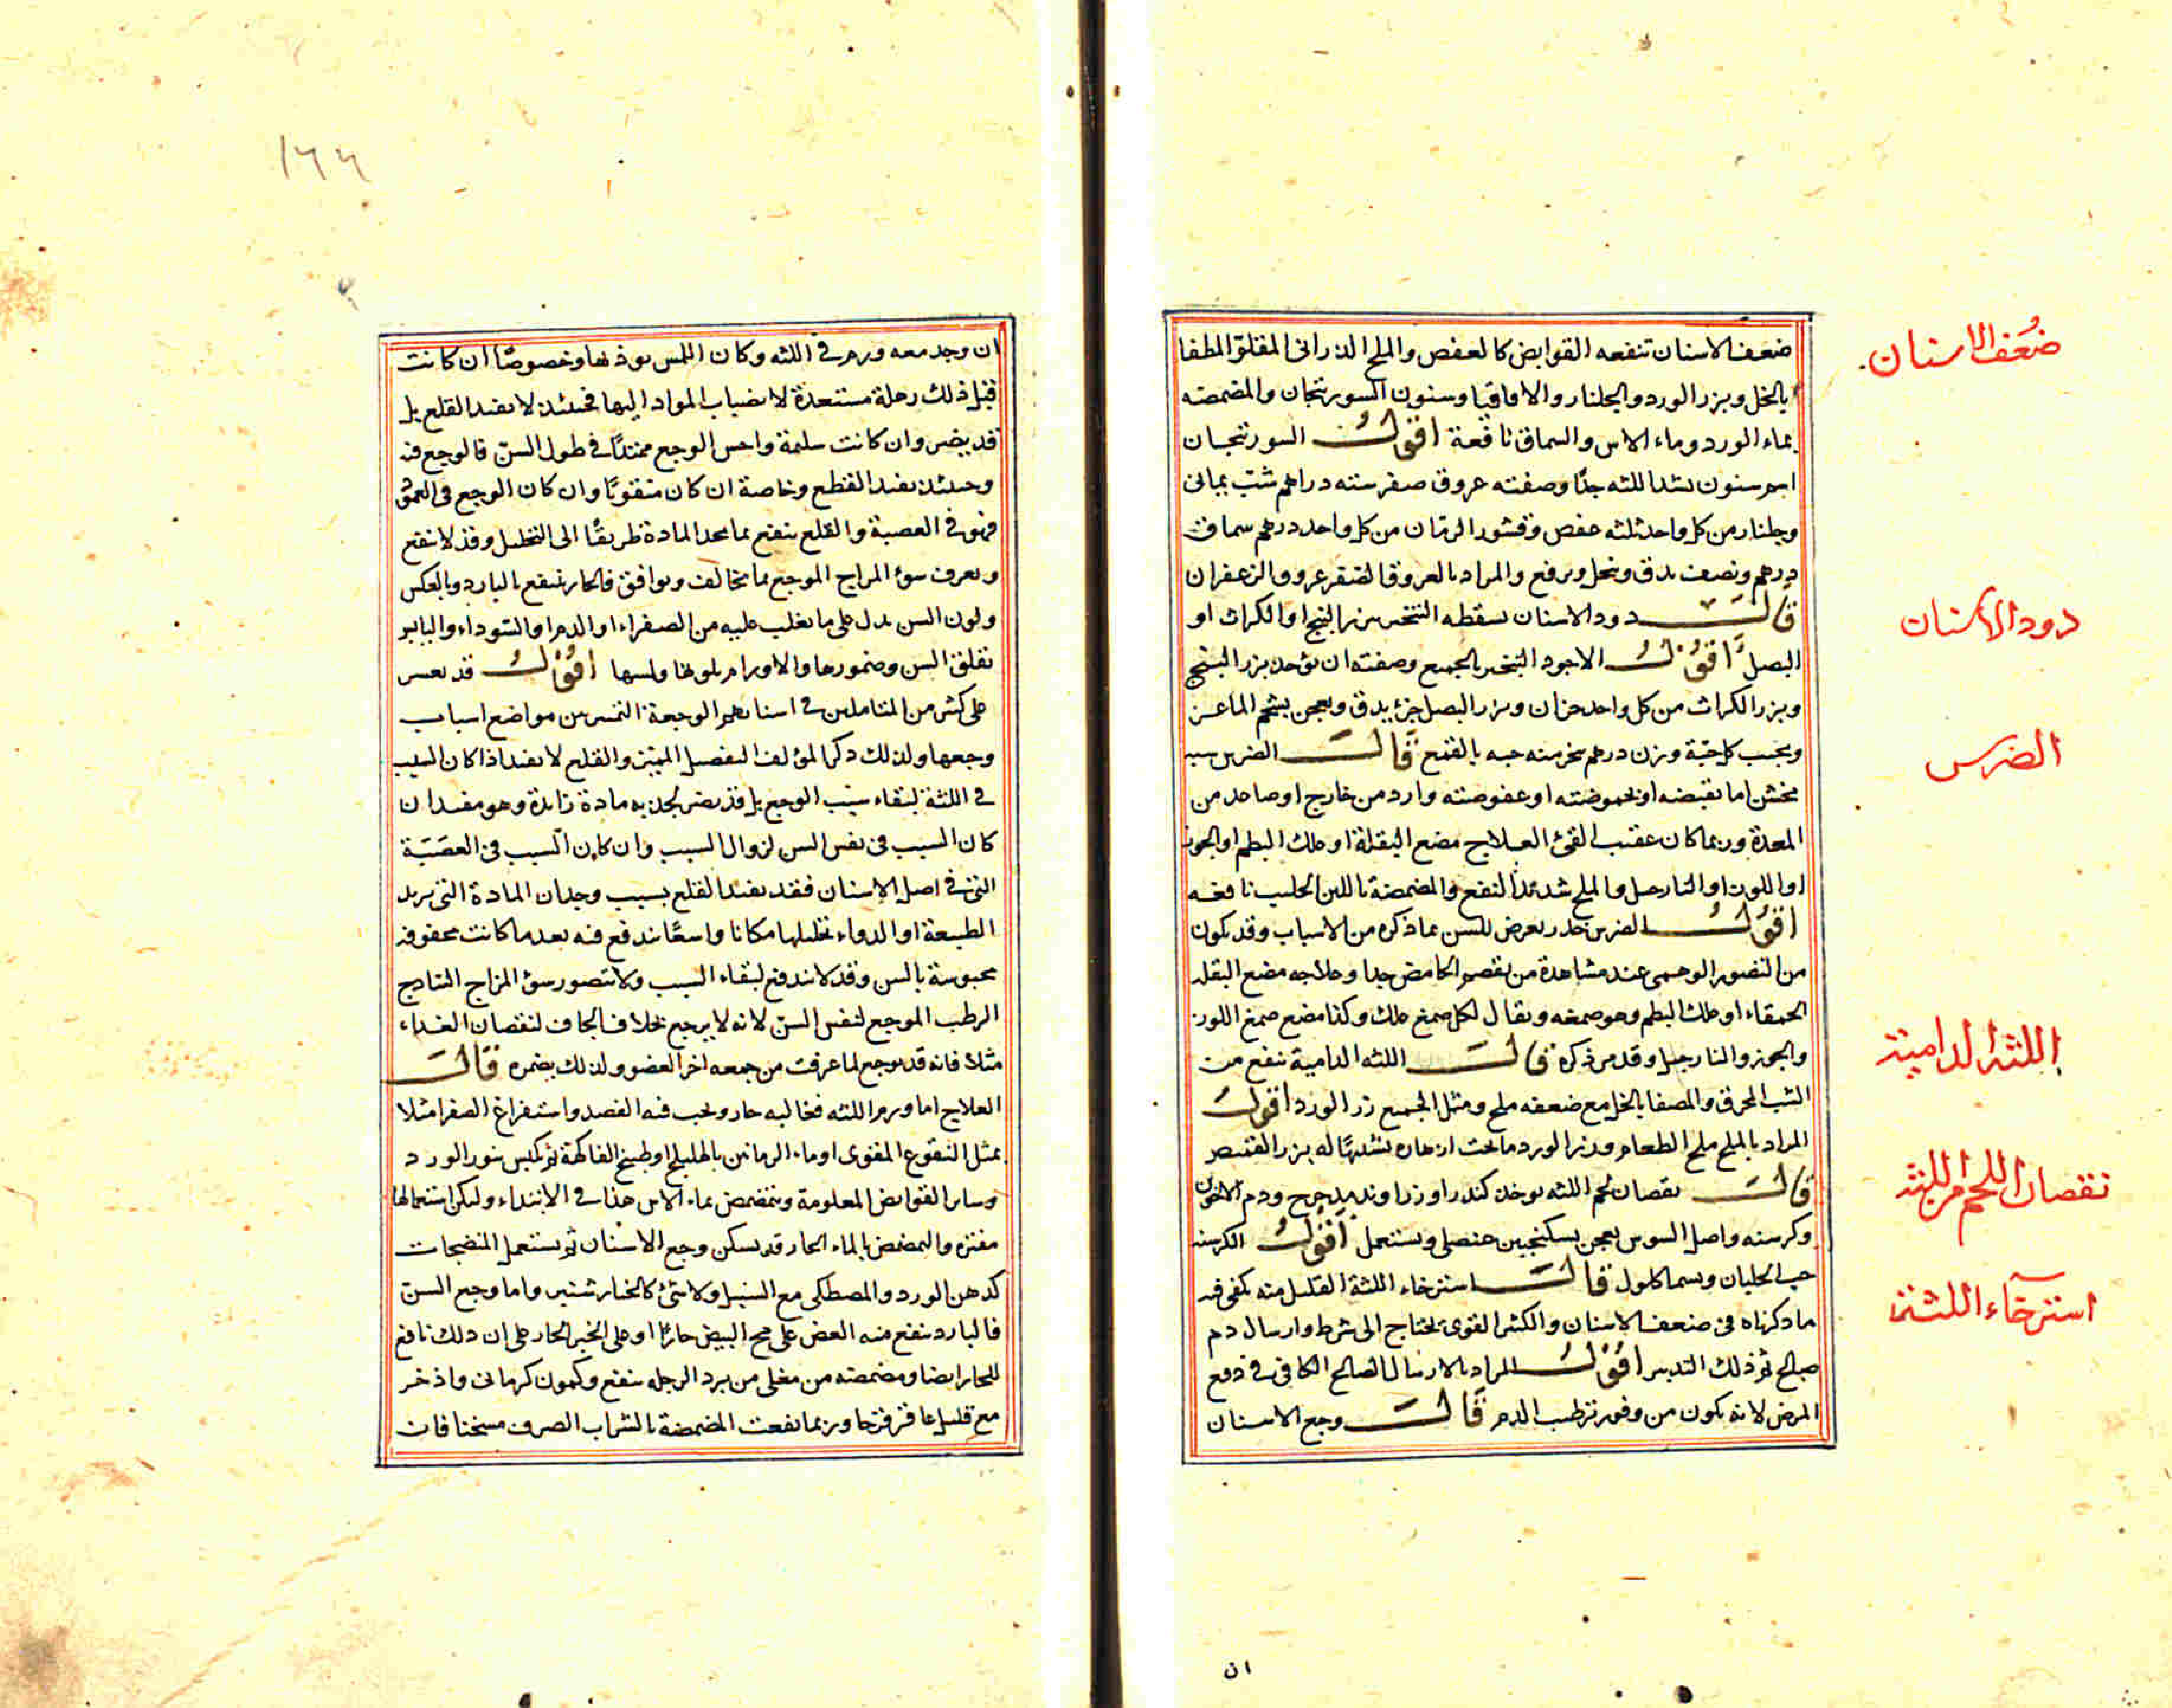 ضعف الاسنان تنفعه القوابض كالعفص والملح الدرانى المقلو المطفا
بالخل وبزر الورد والجلنار والاقاقيا وسنون السورتجان والمضمضه
بماء الورد وماء الاس والسماق نافعة اقول السورتجان
اسم سنون يشد اللثه جدا وصفته عروق صفر ستة دراهم شب يمانى
وجلنار من كل واحد ثلثه عفص وقشور الرمان من كل واحد درهم سماق
درهم ونصف يدق وينخل ويرفع والمراد بالعروق الصفر عروق الزعفران
قال دود الاسنان يسقطه التبخير ببزر البنج او الكراث او
البصل اقول الاجود التبخير بالجميع وصفته ان يؤخذ بزر البنج
وبزر الكراث من كل واحد جزان وبزر البصل جزء يدق ويعجن بشحم الماعز
ويحبب كل حبة وزن درهم يبخر منه حبه بالقمع قال الضرس سببه
مخشن اما بقبضه او بحموضته او عفوصته وارد من خارج او صاعد من
المعدة وربما كان عقيب القئ العلاج مضغ البقلة او علك البطم او الجوز
او اللوز او النارجيل والملح شديد النفع والمضمضة باللبن الحليب نافعه
اقول الضرس خدر يعرض للسن بما ذكره من الاسباب وقد يكون
من التصور الوهمى عند مشاهدة من يقضم الحامض جدا وعلاجه مضغ البقله
الحمقاء او علك البطم وهو صمغه ويقال لكل صمغ علك وكذا مضغ صمغ اللوز
والجوز والنارجيل وقد مر ذكره قال اللثه الدامية ينفع من
الشب المحرق والمصفا بالخل مع ضعفه ملح ومثل الجميع زر الورد اقول
المراد بالملح ملح الطعام وبزر الورد ما تحت ازهاره تشبيها له بزر القميص
قال نقصان لحم اللثه يوخذ كندر وزراوند مدحرج ودم الاخوين
وكرسنه واصل السوس يعجن بسكنجبين عنصلى ويستعمل اقول الكرسنه
حب الجلبان ويسما كلول قال استرخاء اللثة القليل منه يكفى فيه
ما ذكرناه فى ضعف الاسنان والكثير القوى يحتاج الى شرط وارسال دم
صالح ثم ذلك التدبير اقول المراد بالارسال الصالح الكافى فى دفع
المرض لانه يكون من وفور ترطيب الدم قال وجع الاسنان
ان
ضعف الاسنان
دود الاسنان
الضرس
اللثه الدامية
نقصان اللحم من اللثه
استرخاء اللثة
١٦٦
ان وجد معه ورم فى اللثه وكان اللمس يوذيها وخصوصا ان كانت
قبل ذلك رهلة مستعدة لانصباب المواد اليها فحينئذ لا يفيد القلع بل
قد يضر وان كانت سليمة واحس الوجع ممتدا فى طول السن فالوجع فيه
وحينئذ يفيد القطع وخاصة ان كان مثقوبا وان كان الوجع فى العمق
فهو فى العصبة والقلع ينفع بما يجد المادة طريقا الى التحليل وقد لا ينفع
ويعرف سوء المزاج الموجع بما يخالف ويوافق فالحار ينتفع بالبارد وبالعكس
ولون السن يدل على ما يغلب عليه من الصفراء او الدم او السوداء واليابس
بقلق السن وضمورها والاورام بلونها ولمسها اقول قد يعسر
على كثير من المتاملين فى اسنانهم الوجعة التمييز بين مواضع اسباب
وجعها ولذلك ذكر المؤلف التفصيل المميز والقلع لا يفيد اذا كان السبب
فى اللثة لبقاء سبب الوجع بل قد يضر بجذبه مادة زايدة وهو مفيد ان
كان السبب فى نفس السن لزوال السبب وان كان السبب فى العصبة
التى فى اصل الاسنان فقد يفيد القلع بسبب وجدان المادة التى تريد
الطبيعة او الدواء تحليلها مكانا واسعا تندفع فيه بعد ما كانت محقونه
محبوسة بالسن وقد لا تندفع لبقاء السبب ولا يتصور سوء المزاج الساذج
الرطب الموجع لنفس السن لانه لا يوجع بخلاف الجاف لنقصان الغذاء
مثلا فانه قد يوجع لما عرفت من جمعه اجزا العضو ولذلك يضمره قال
العلاج اما ورم اللثه فغالبه حار ويجب فيه الفصد واستفراغ الصفرا مثلا
بمثل النقوع المقوى او ماء الرمانين بالهليلج او طبيخ الفاكهة ثم يكبس بزر الورد
وساير القوابض المعلومة ويتمضمض بماء الاس هذا فى الابتداء وليكن استعمالها
مفترة والتمضمض بالماء الحار قد يسكن وجع الاسنان ثم يستعمل المنضجات
كدهن الورد والمصطكى مع السنبل ولا شئ كالخيار شنبر واما وجع السن
فالبارد ينفع منه العض على مح البيض حارا او على الخبز الحار على ان ذلك نافع
للحار ايضا ومضمضه من مغلى من برد الرجله ينفع وكمون كرمانى واذخر
مع قليل عاقرقرحا وربما نفعت المضمضة بالشراب الصرف مسخنا فان